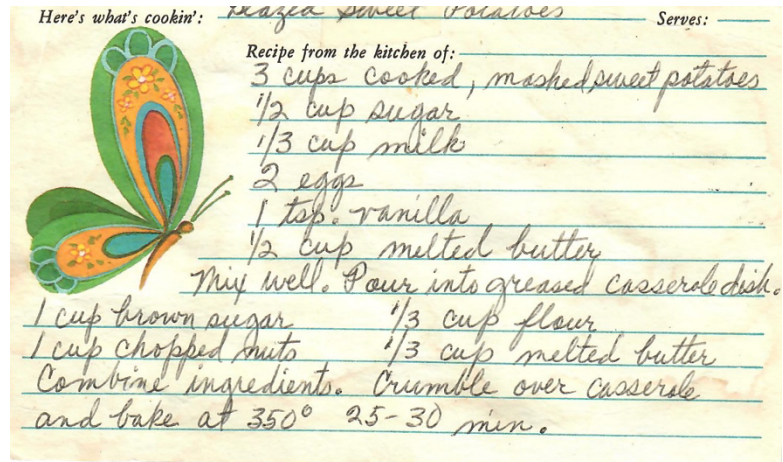 Here's what's cookin': Glazed Sweet Potatoes Serves:
Recipe from the kitchen of:
3 cups cooked, mashed sweet potatoes
1/2 cup sugar
1/3 cup milk
2 eggs
1 tsp. vanilla
1/2 cup melted butter
Mix well. Pour into greased casserole dish.
1 cup brown sugar 1/3 cup flour
1 cup chopped nuts 1/3 cup melted butter
Combine ingredients. Crumble over casserole
and bake at 350° 25-30 min.